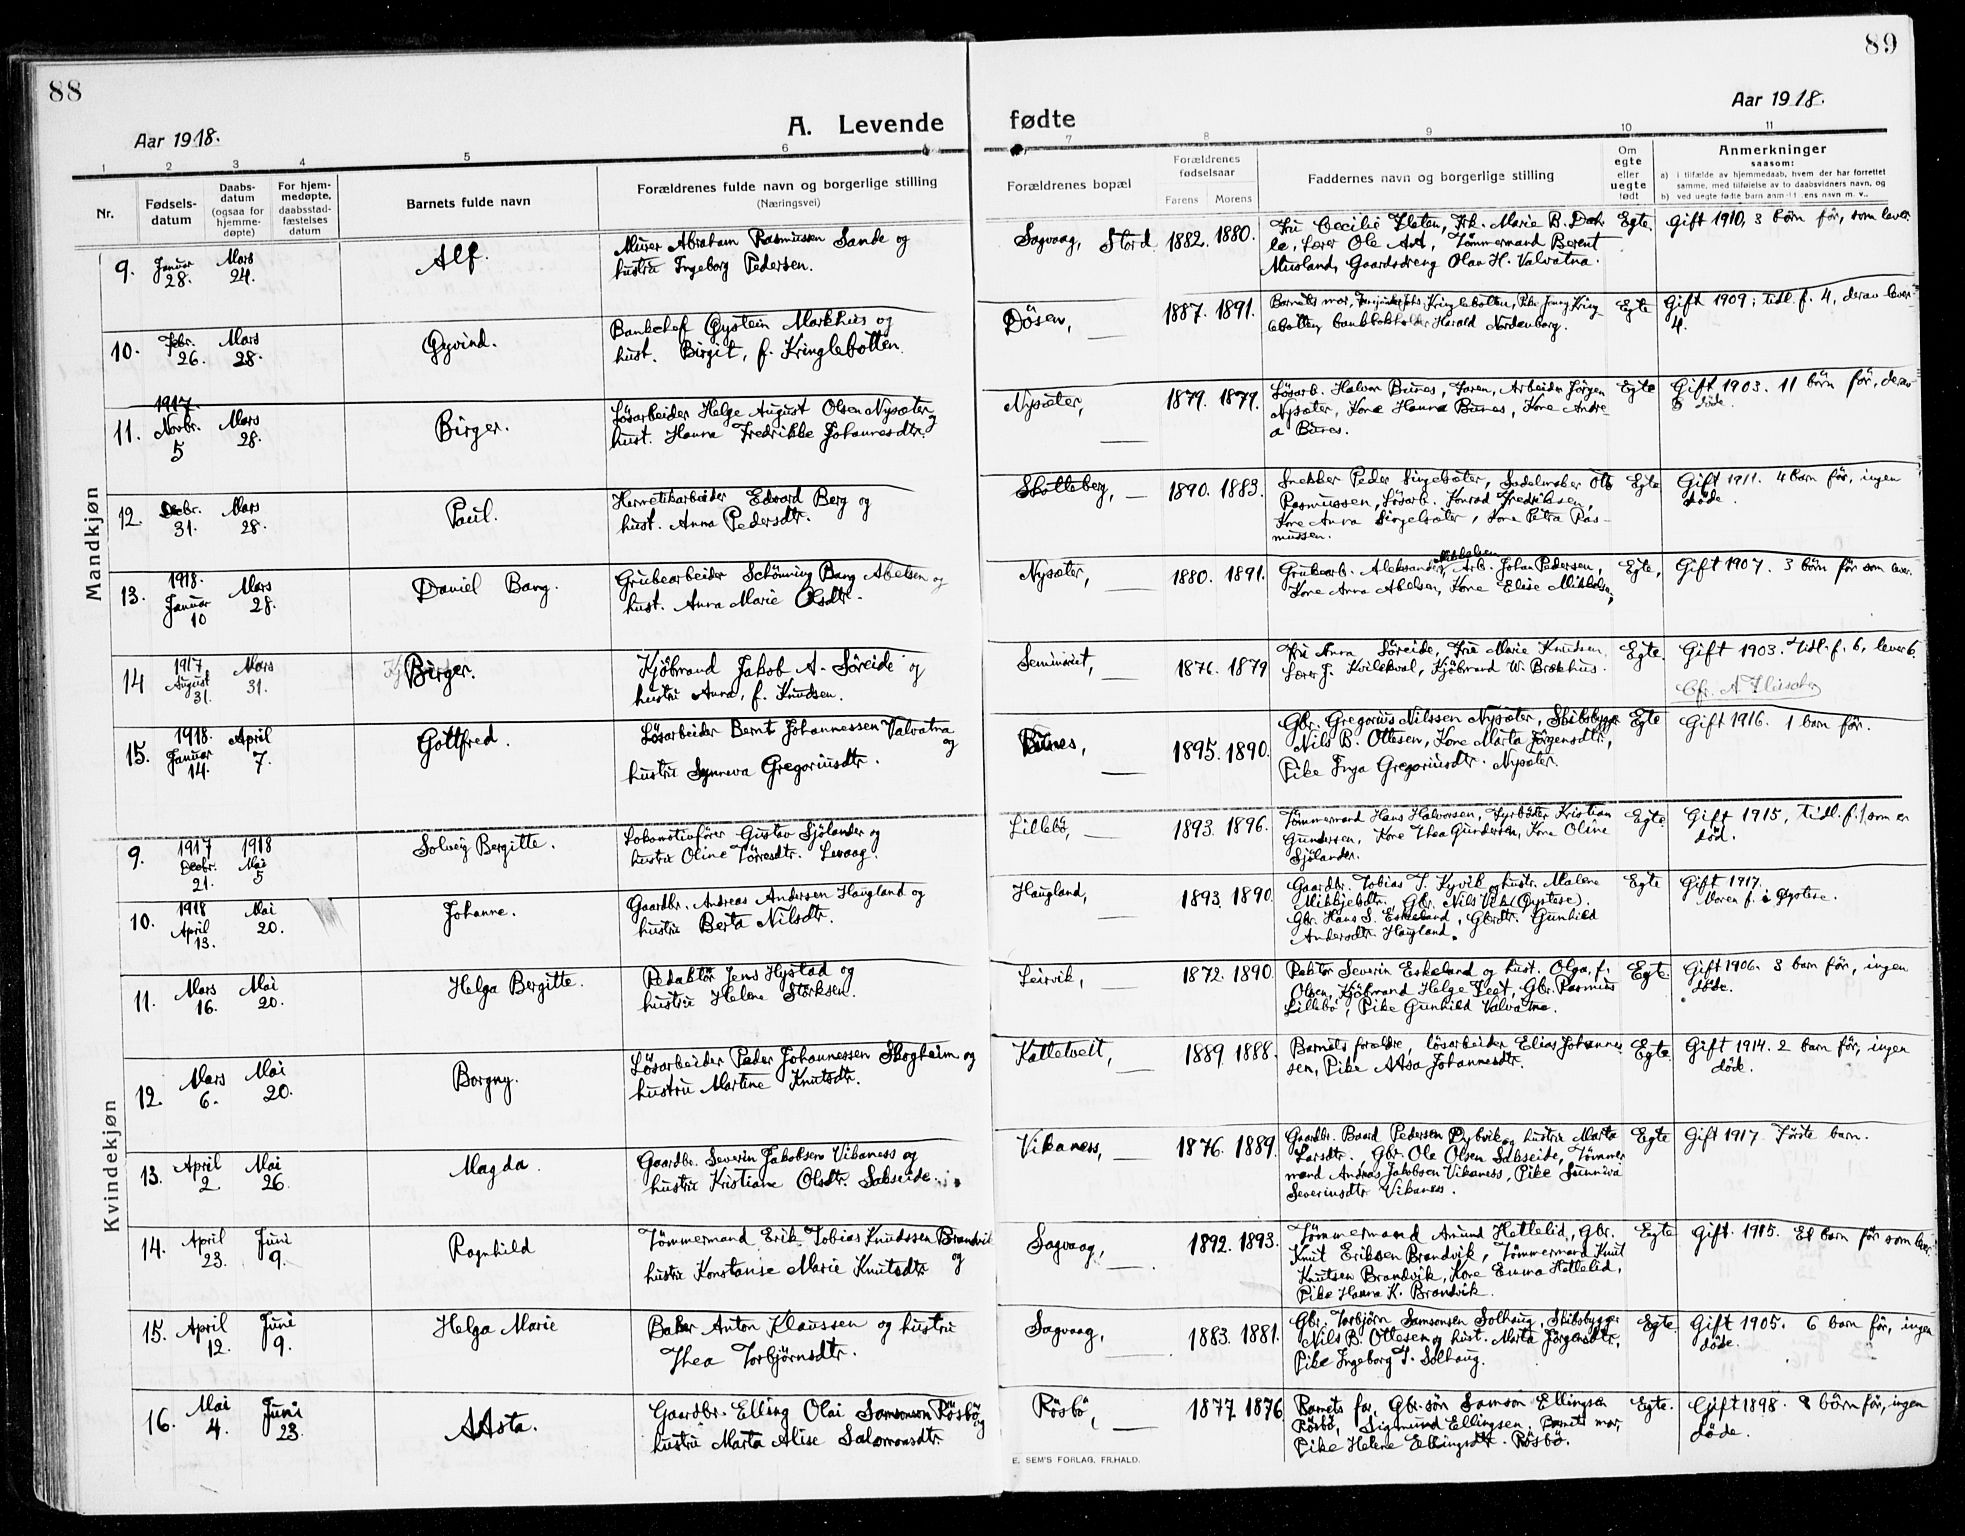 88
Aar 1918.
A. Levende
1 2 3 4 5 6
Nr.
Fødsels-
datum
Daabs-
datum
(ogsaa for
hjemme-
døpte)
For hjem-
medøpte,
daabsstad-
fæstelses
datum
Barnets fulde navn
Forældrenes fulde navn og borgerlige stilling
(Næringsvei)
Mandkjøn
9. Januar 28. Mars 24. Alf.
Murer Abraham Rasmussen Sande og
hustru Ingeborg Pedersen.
10. Febr. 26. Mars 28. Øyvind.
Bankchef Øystein Markhus og
hust. Birgit, f. Kringlebotten.
11. 1917 Novbr. 5 Mars 28. Birger.
Løsarbeider Helge August Olsen Nysæter og
hust. Hanna Fredrikke Johannesdtr.
12. Debr. 31. Mars 28. Paul.
Hermetikarbeider Edvard Berg og
hust. Anna Pedersdtr.
13. 1918. Januar 10 Mars 28. Daniel Bang.
Grubearbeider Schönning Bang Abelsen og
hust. Anna Marie Olsdtr.
14 1917 August 31. Mars 31. Birger.
Kjøbmand Jakob A. Søreide og
hustru Anna, f. Knudsen.
15. 1918. Januar 14. April 7. Gottfred.
Løsarbeider Bernt Johannessen Valvatna og
hustru Synneva Gregoriusdtr.
Kvindekjøn
9. 1917 Decbr. 21. 1918 Mai 5 Solveig Bergitte.
Lokomotivfører Gustav Sjølander og
hustru Oline Tørresdtr. Levaag.
10. 1918 April 13. Mai 20. Johanne.
Gaardbr. Andreas Andersen Haugland og
hustru Berta Nilsdtr.
11. Mars 16. Mai 20. Helga Bergitte.
Redaktør Jens Hystad og
hustru Helene Størksen.
12. Mars 6. Mai 20. Borgny.
Løsarbeider Peder Johannessen Skogheim og
hustru Martine Knutsdtr.
13. April 2 Mai 26. Magda.
Gaardbr. Severin Jakobsen Vikaness og
hustru Kristiane Olsdtr. Sakseide.
14. April 23. Juni 9. Ragnhild
Tømmermand Erik Tobias Knudssen Brandvik og
hustru Konstanse Marie Knutsdtr
15. April 12. Juni 9. Helga Marie
Baker Anton Klaussen og hustru
Thea Torbjørnsdtr.
16. Mai 4. Juni 23. AAsta.
Gaardbr. Elling Olai Samsonson Røsbø og
hustru Marta Alise Salomonsdtr.
89
Aar 1918.
fødte
7 8 9 10 11
Forældrenes bopæl
Forældrenes
fødselsaar
Farens Morens
Faddernes navn og borgerlige stilling
Om
egte
eller
uegte
født
Anmerkninger
saasom:
a) i tilfælde av hjemmedaab, hvem der har forrettet
samme, med tilføielse av to daabsvidners navn, og
b) ved uegte fødte barn anm ens navn m. v.,
Sagvaag, Stord 1882. 1880.
Fru Cecilie Floten, Frk. Marie B. Dah-
le, Lærer Ole Aat, Tømmermand Berent
Musland, Gaardsdreng Olav H. Valvatna.
Egte.
Gift 1910, 3 børn før, som lever
Døsen, — 1887. 1891.
Barnets mor, Kringlebotten, Pike Jenny Kring-
lebotten, bankbokholder Harald Nordenborg.
Egte
Gift 1909; tidl. f. 4, derav lever
4.
Nysæter, — 1879. 1879.
Løsarb. Halvor Bunes, Faren, Arbeider Jørgen
Nysæter, Kone Hanna Bunes, Kone Andre-
a Bunes.
Egte
Gift 1903. 11 børn før, derav
5 døde.
Skotteberg, — 1890. 1883.
Snekker Peder Singelsæter, Sadelmaker Ole
Rasmussen, Løsarb. Konrad Fredriksen,
Kone Anna Singelsæter, Kone Petra Ras-
mussen.
Egte
Gift 1911. 4 barn før, ingen
døde.
Nysæter, — 1880. 1891.
Grubearb. Aleksander Mikkelsen, Arb. Johan Pedersen,
Kone Anna Abelsen, Kone Elise Mikkelsen,
Egte,
Gift 1907. 3 børn før som lever.
Seminariet, — 1876. 1879
Fru Anna Søreide, Fru Marie Knudsen,
Lærer J. Kvilekval, Kjøbmand W. Brækhus.
Egte.
Gift 1903. Tidl. f. 6, lever 6.
Bunes, — 1895. 1890.
Gbr. Gregorius Nilssen Nysæter, Skibsbygger
Nils B. Ottesen, Kone Marta Jørgensdtr.,
Pike Inga Gregoriusdtr. Nysæter.
Egte
Gift 1916. 1 barn før.
Lillebø, — 1893. 1896.
Tømmermand Hans Halvorsen, Fyrbøter Kristian
Gundersen, Kone Thea Gundersen, Kone Oline
Sjølander.
Egte.
Gift 1915, tidl. f. 1, som er
død.
Haugland, — 1893. 1890
Gaardbr. Tobias T. Kyvik og hustr. Malene
Mikkjelsdtr., Gbr. Nils Vik (Øystese).
Gbr. Hans S. Eskeland, Gbrdtr. Gunhild
Andersdtr. Haugland.
Egte
Gift 1917.
Moren f. i Øystese.
Leirvik, — 1872. 1890.
Rektor Severin Eskeland og hust. Olga, f.
Olsen, Kjøbmand Helge Vegt, Gbr. Rasmus
Lillebø, Pike Gunhild Valvatna.
Egte.
Gift 1906. 3 barn før, ingen
døde.
Kattetveit, — 1889. 1888.
Barnets forældre, løsarbeider Elias Johannes-
sen, Pike AAsa Johannesdtr.
Egte.
Gift 1914. 2 barn før, ingen
døde.
Vikaness, — 1876. 1889.
Gaardbr. Baard Pedersen Rybvik og hustru Marta
Larsdtr. Gbr. Ole Olsen Sakseide, Tømmer-
mand Andreas Jakobsen Vikaness, Pike Sunniva
Severinsdtr. Vikaness.
Egte
Gift 1917. Første barn.
Sagvaag, — 1892. 1893.
Tømmermand Amund Hettelid, Gbr.
Knut Eriksen Brandvik, Tømmermand Knut
Knutsen Brandvik, Kone Emma Hettelid,
Pike Hanna K. Brandvik.
Egte.
Gift. 1915. Et barn før som lever.
Sagvaag, — 1883. 1881.
Gbr. Torbjørn Samsonsen Solhaug, Skibsbygger
Nils B. Ottesen og hust. Marta Jørgensdtr,
Pike Ingeborg T. Solhaug.
Egte.
Gift 1905. 6 barn før, ingen
døde.
Røsbø, — 1877. 1876
Barnets far, Gbr.søn Samson Ellingsen
Røsbø, Sigmund Ellingsen, Barnets mor,
Pike Helene Ellingsdtr. Røsbø.
Egte.
Gift 1898. 8 børn før, ingen
døde.
E. SEM'S FORLAG, FR.HALD.